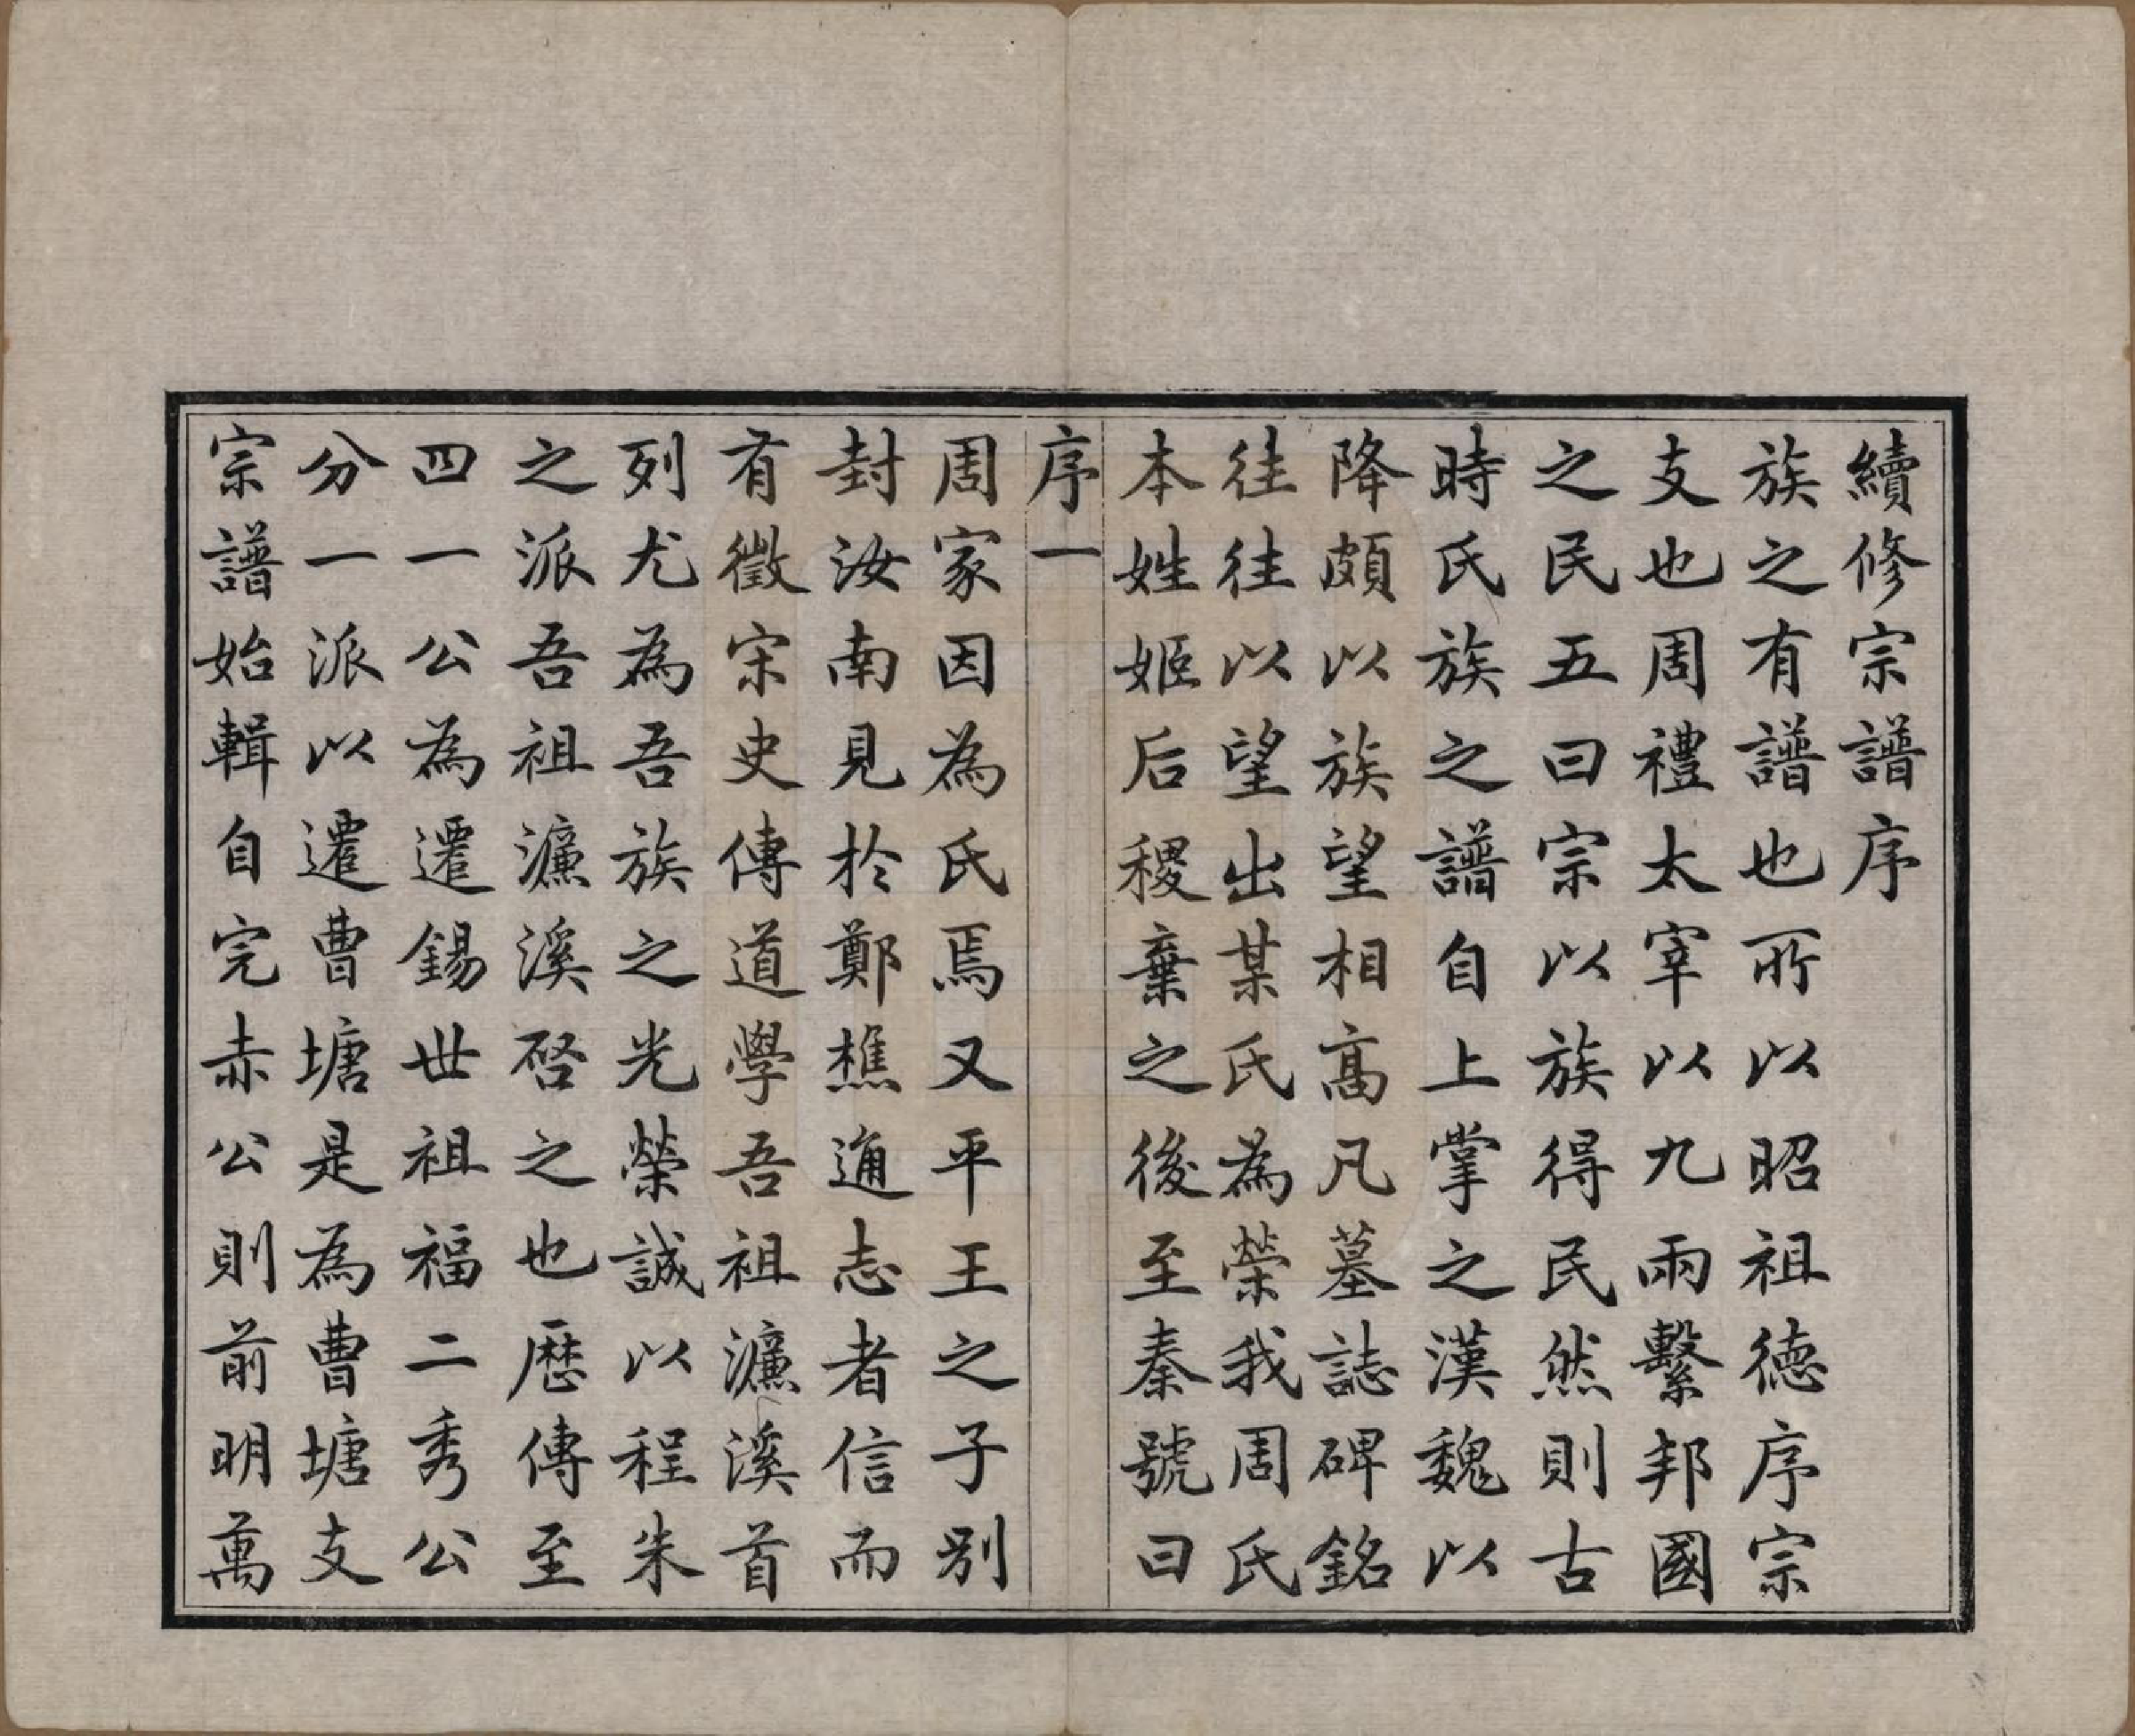 續修宗譜序
族之有譜也所以昭祖徳序宗
支也周禮太宰以九兩繫邦國
之民五曰宗以族得民然則古
時氏族之譜自上掌之漢魏以
降頗以族望相高凡墓誌碑銘
往往以望出某氏為榮我周氏
本姓姬后稷棄之後至秦號曰
序一
周家因為氏焉又平王之子别
封汝南見於鄭樵通志者信而
有徵宋史傳道學吾祖濂溪首
列尤為吾族之光榮誠以程朱
之派吾祖濂溪啓之也歴傳至
四一公為遷錫世祖福二秀公
分一派以遷曹塘是為曹塘支
宗譜始輯自完赤公則前明萬